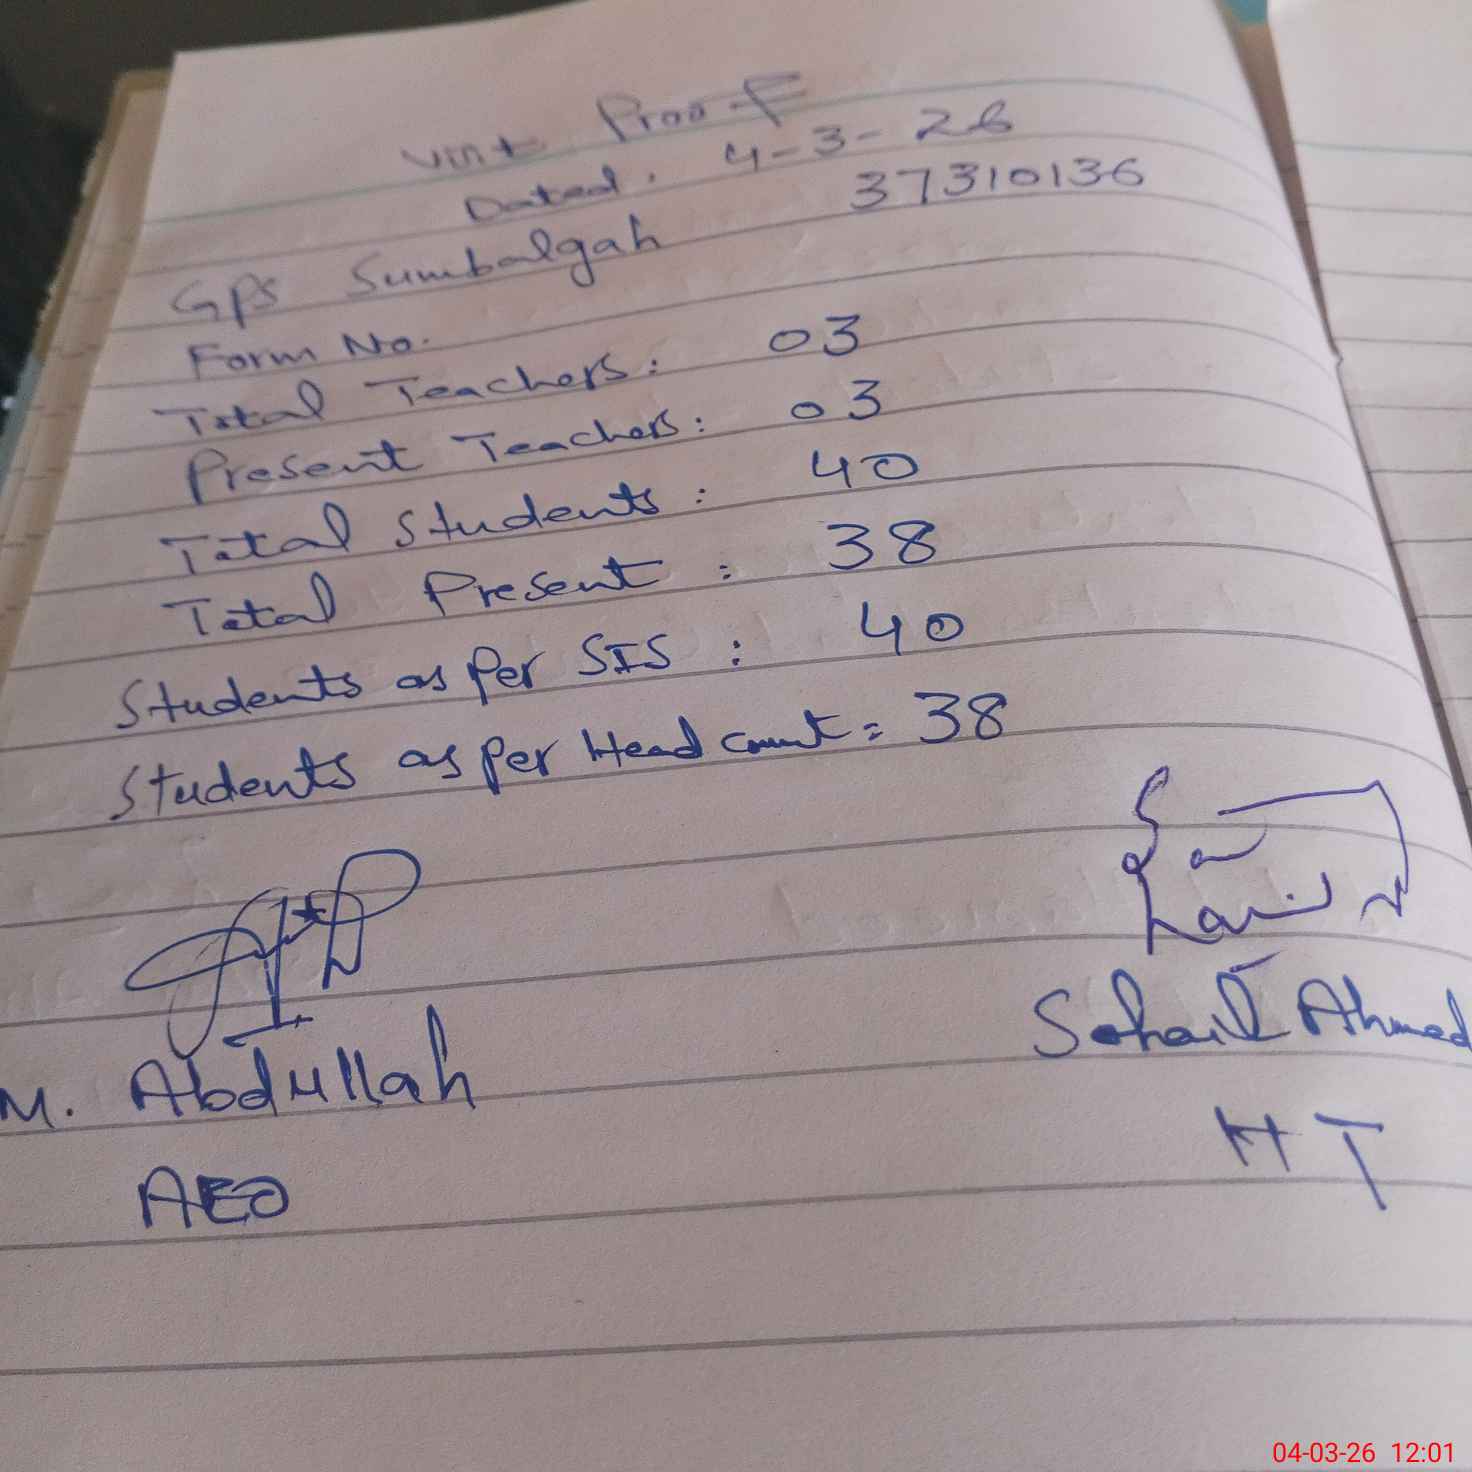 Visit Proof
Dated. 4-3-26
GPS Sumbalgah 37310136
Form No.
Total Teachers: 03
Present Teachers: 03
Total Students: 40
Total Present: 38
Students as Per SIS: 40
Students as Per Head count = 38
M. Abdullah
Sohail Ahmed
AEO
HT
04-03-26 12:01